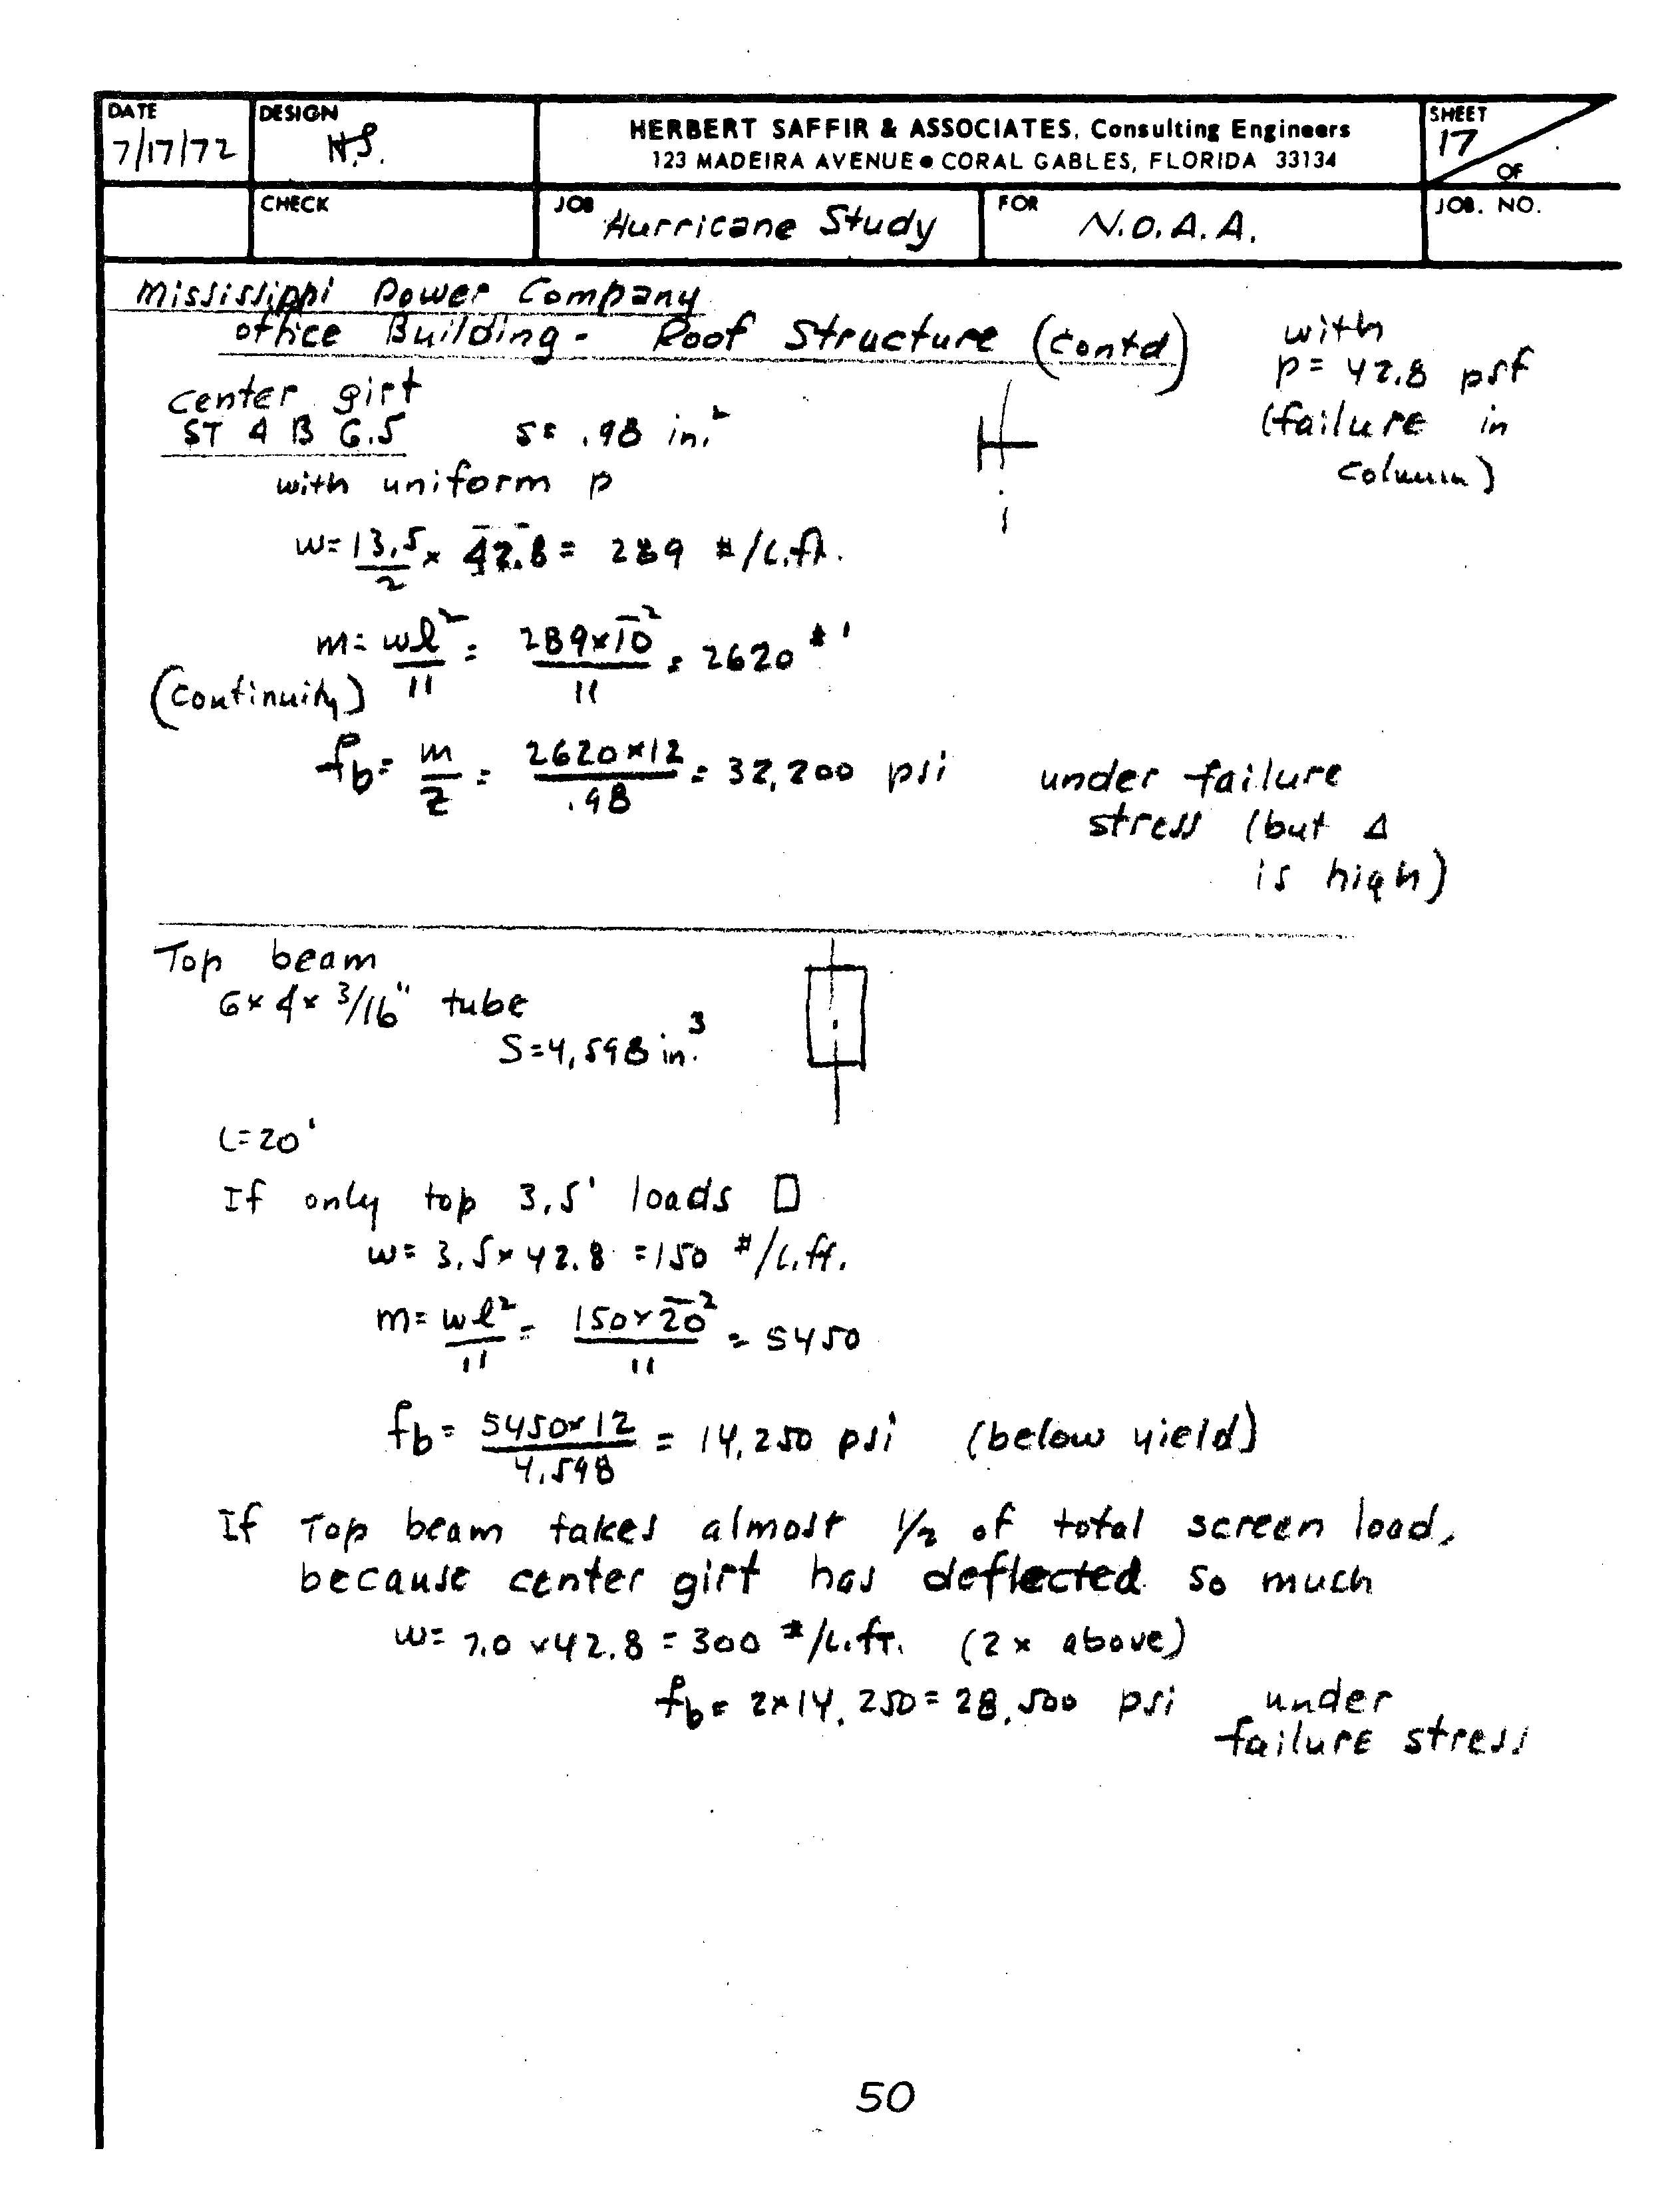 DATE
7/17/72
DESIGN
H.S.
HERBERT SAFFIR & ASSOCIATES, Consulting Engineers
123 MADEIRA AVENUE • CORAL GABLES, FLORIDA 33134
SHEET
17
OF
CHECK
JOB Hurricane Study
FOR N.O.A.A.
JOB. NO.
Mississippi Power Company
Office Building - Roof Structure (Contd)
with
p = 42.8 psf
(failure in
column)
center girt
ST 4 B 6.5 s = .98 in.²
with uniform p
w = 13.5/2 x 42.8 = 289 #/l.ft.
m = wl²/11 = 289x10²/11 = 2620 #'
(continuity)
fb = m/Z = 2620x12/.98 = 32,200 psi
under failure
stress (but Δ
is high)
Top beam
6x4x 3/16" tube
S=4,598 in.³
L=20'
If only top 3.5' loads □
w = 3.5x42.8 = 150 #/l.ft.
m = wl²/11 = 150x20²/11 = 5450
fb = 5450x12/4.598 = 14,250 psi (below yield)
If Top beam takes almost 1/2 of total screen load,
because center girt has deflected so much
w = 7.0 x 42.8 = 300 #/l.ft. (2 x above)
fb = 2x14,250 = 28,500 psi under
failure stress
50